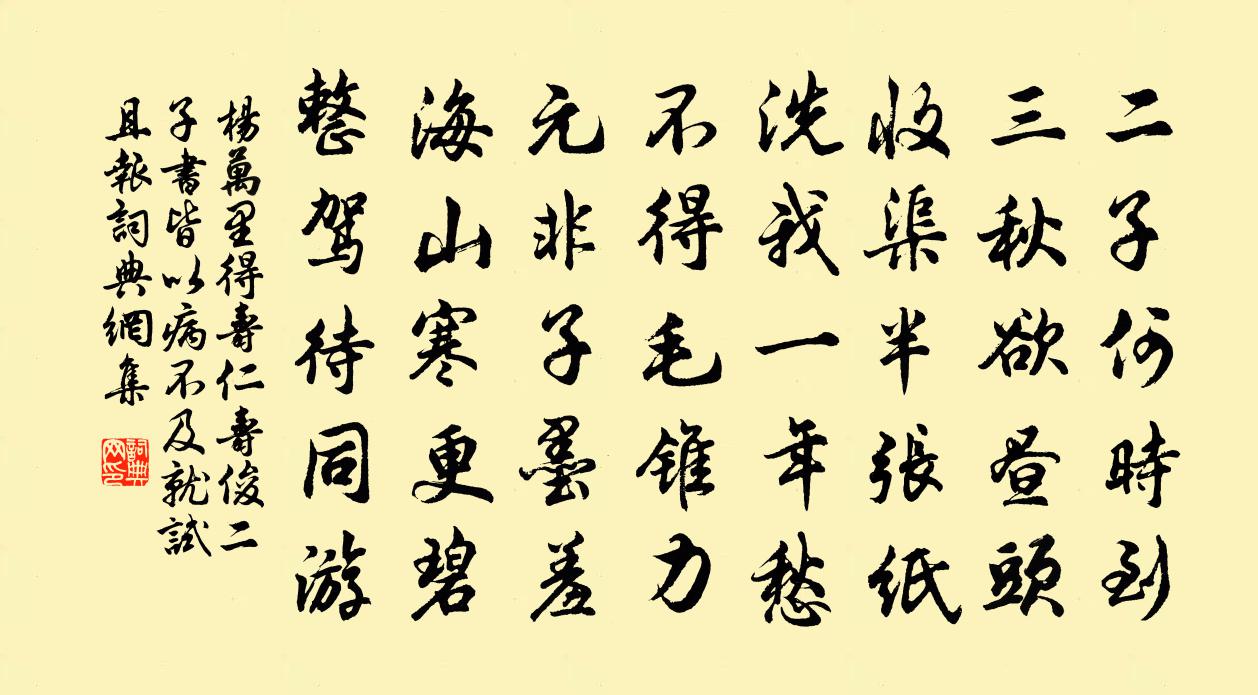 二子何時到
三秋欲盡頭
收渠半張紙
洗我一年愁
不得毛錐力
元非子墨羞
海山寒更碧
整駕待同游
楊萬里得壽仁壽俊二
子書皆以病不及就試
且報詞典網集
詞典
网印